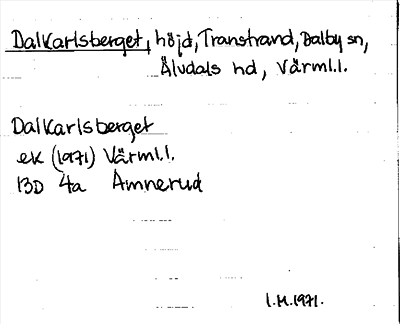 Dalkarlsberget, höjd, Transtrand, Dalby sn,
Älvdals hd, Värml.l.
Dalkarlsberget
ek (1971) Värml.l.
13D 4a Amnerud
I.H. 1971.